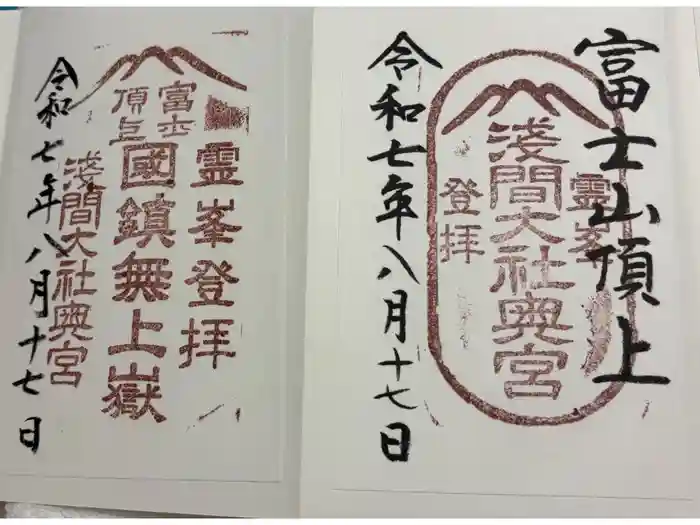 富士山頂上
霊峯
登拝
浅間大社奥宮
令和七年八月十七日
霊峯登拝
富士
頂上
國鎮無上嶽
浅間大社奥宮
令和七年八月十七日